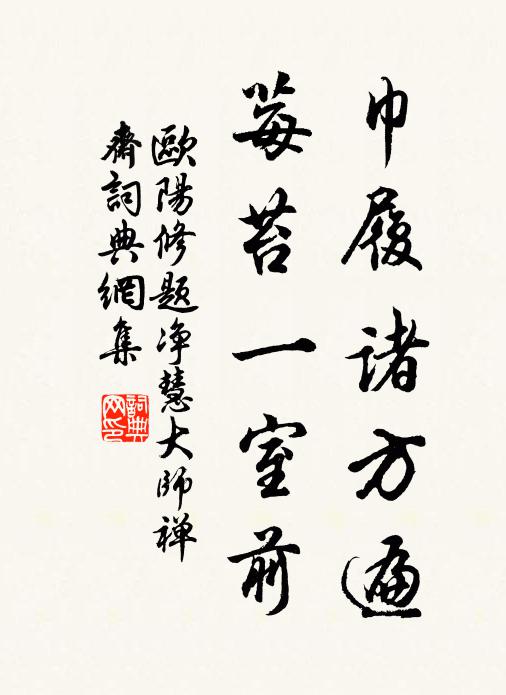 巾履諸方遍
莓苔一室前
歐陽修题净慧大師禅
齋詞典網集
詞典网印